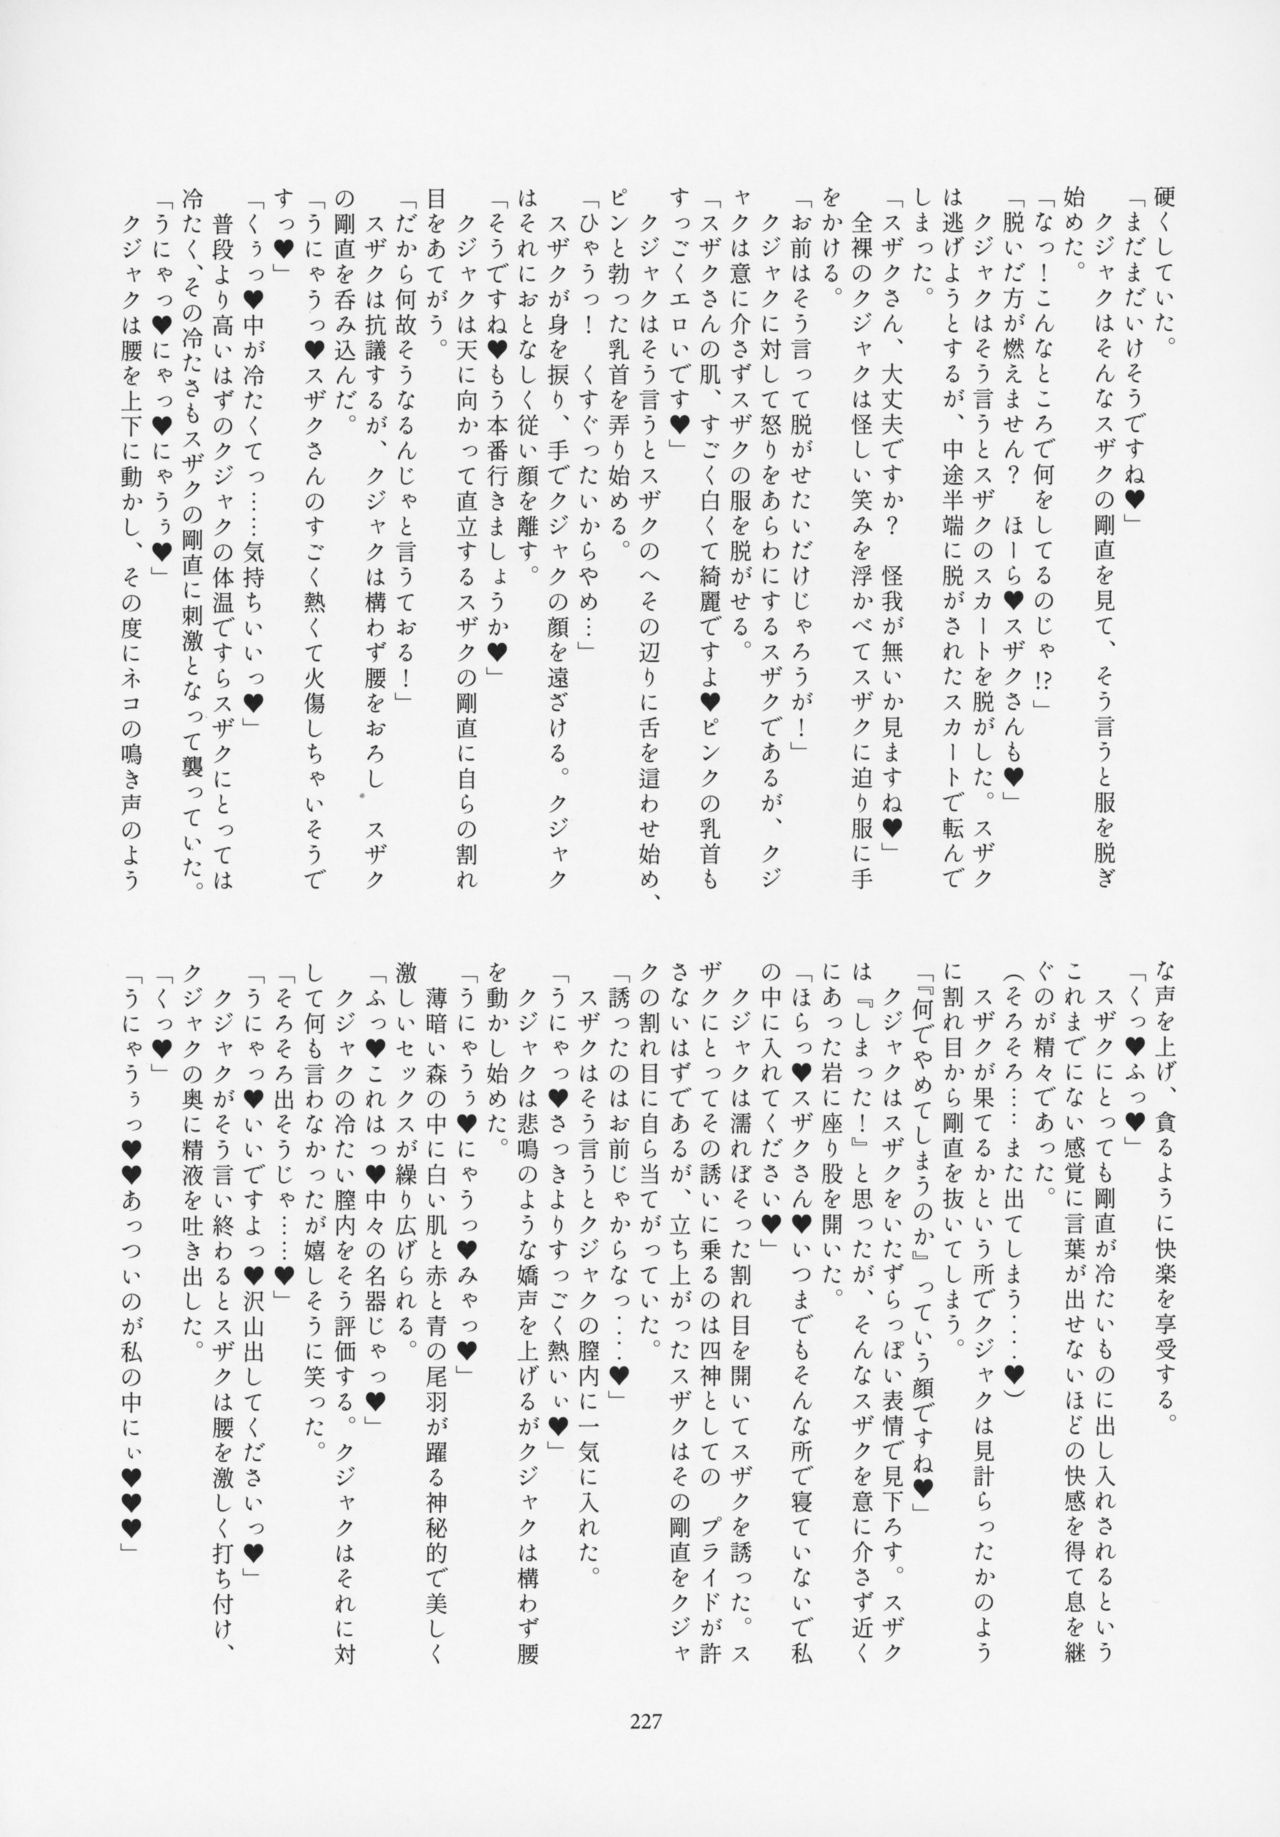 硬くしていた。
「まだまだいけそうですね♥」
クジャクはそんなスザクの剛直を見て、そう言うと服を脱ぎ
始めた。
「なっ！こんなところで何をしてるのじゃ⁉」
「脱いだ方が燃えません？　ほーら♥スザクさんも♥」
クジャクはそう言うとスザクのスカートを脱がした。スザク
は逃げようとするが、中途半端に脱がされたスカートで転んで
しまった。
「スザクさん、大丈夫ですか？　怪我が無いか見ますね♥」
全裸のクジャクは怪しい笑みを浮かべてスザクに迫り服に手
をかける。
「お前はそう言って脱がせたいだけじゃろうが！」
クジャクに対して怒りをあらわにするスザクであるが、クジ
ャクは意に介さずスザクの服を脱がせる。
「スザクさんの肌、すごく白くて綺麗ですよ♥ピンクの乳首も
すっごくエロいです♥」
クジャクはそう言うとスザクのへその辺りに舌を這わせ始め、
ピンと勃った乳首を弄り始める。
「ひゃうっ！　くすぐったいからやめ…」
スザクが身を捩り、手でクジャクの顔を遠ざける。クジャク
はそれにおとなしく従い顔を離す。
「そうですね♥もう本番行きましょうか♥」
クジャクは天に向かって直立するスザクの剛直に自らの割れ
目をあてがう。
「だから何故そうなるんじゃと言うておる！」
スザクは抗議するが、クジャクは構わず腰をおろし　スザク
の剛直を呑み込んだ。
「うにゃうっ♥スザクさんのすごく熱くて火傷しちゃいそうで
すっ♥」
「くぅっ♥中が冷たくてっ……気持ちいいっ♥」
普段より高いはずのクジャクの体温ですらスザクにとっては
冷たく、その冷たさもスザクの剛直に刺激となって襲っていた。
「うにゃっ♥にゃっ♥にゃうぅ♥」
クジャクは腰を上下に動かし、その度にネコの鳴き声のよう
な声を上げ、貪るように快楽を享受する。
「くっ♥ふっ♥」
スザクにとっても剛直が冷たいものに出し入れされるという
これまでにない感覚に言葉が出せないほどの快感を得て息を継
ぐのが精々であった。
（そろそろ……また出てしまう‥‥♥）
スザクが果てるかという所でクジャクは見計らったかのよう
に割れ目から剛直を抜いてしまう。
「『何でやめてしまうのか』っていう顔ですね♥」
クジャクはスザクをいたずらっぽい表情で見下ろす。スザク
は『しまった！』と思ったが、そんなスザクを意に介さず近く
にあった岩に座り股を開いた。
「ほらっ♥スザクさん♥いつまでもそんな所で寝ていないで私
の中に入れてください♥」
クジャクは濡れぼそった割れ目を開いてスザクを誘った。ス
ザクにとってその誘いに乗るのは四神としての　プライドが許
さないはずであるが、立ち上がったスザクはその剛直をクジャ
クの割れ目に自ら当てがっていた。
「誘ったのはお前じゃからなっ‥‥♥」
スザクはそう言うとクジャクの膣内に一気に入れた。
「うにゃっ♥さっきよりすっごく熱いぃ♥」
クジャクは悲鳴のような嬌声を上げるがクジャクは構わず腰
を動かし始めた。
「うにゃうぅ♥にゃうっ♥みゃっ♥」
薄暗い森の中に白い肌と赤と青の尾羽が躍る神秘的で美しく
激しいセックスが繰り広げられる。
「ふっ♥これはっ♥中々の名器じゃっ♥」
クジャクの冷たい膣内をそう評価する。クジャクはそれに対
して何も言わなかったが嬉しそうに笑った。
「そろそろ出そうじゃ……♥」
「うにゃっ♥いいですよっ♥沢山出してくださいっ♥」
クジャクがそう言い終わるとスザクは腰を激しく打ち付け、
クジャクの奥に精液を吐き出した。
「くっ♥」
「うにゃうぅっ♥♥あっついのが私の中にぃ♥♥♥」
227